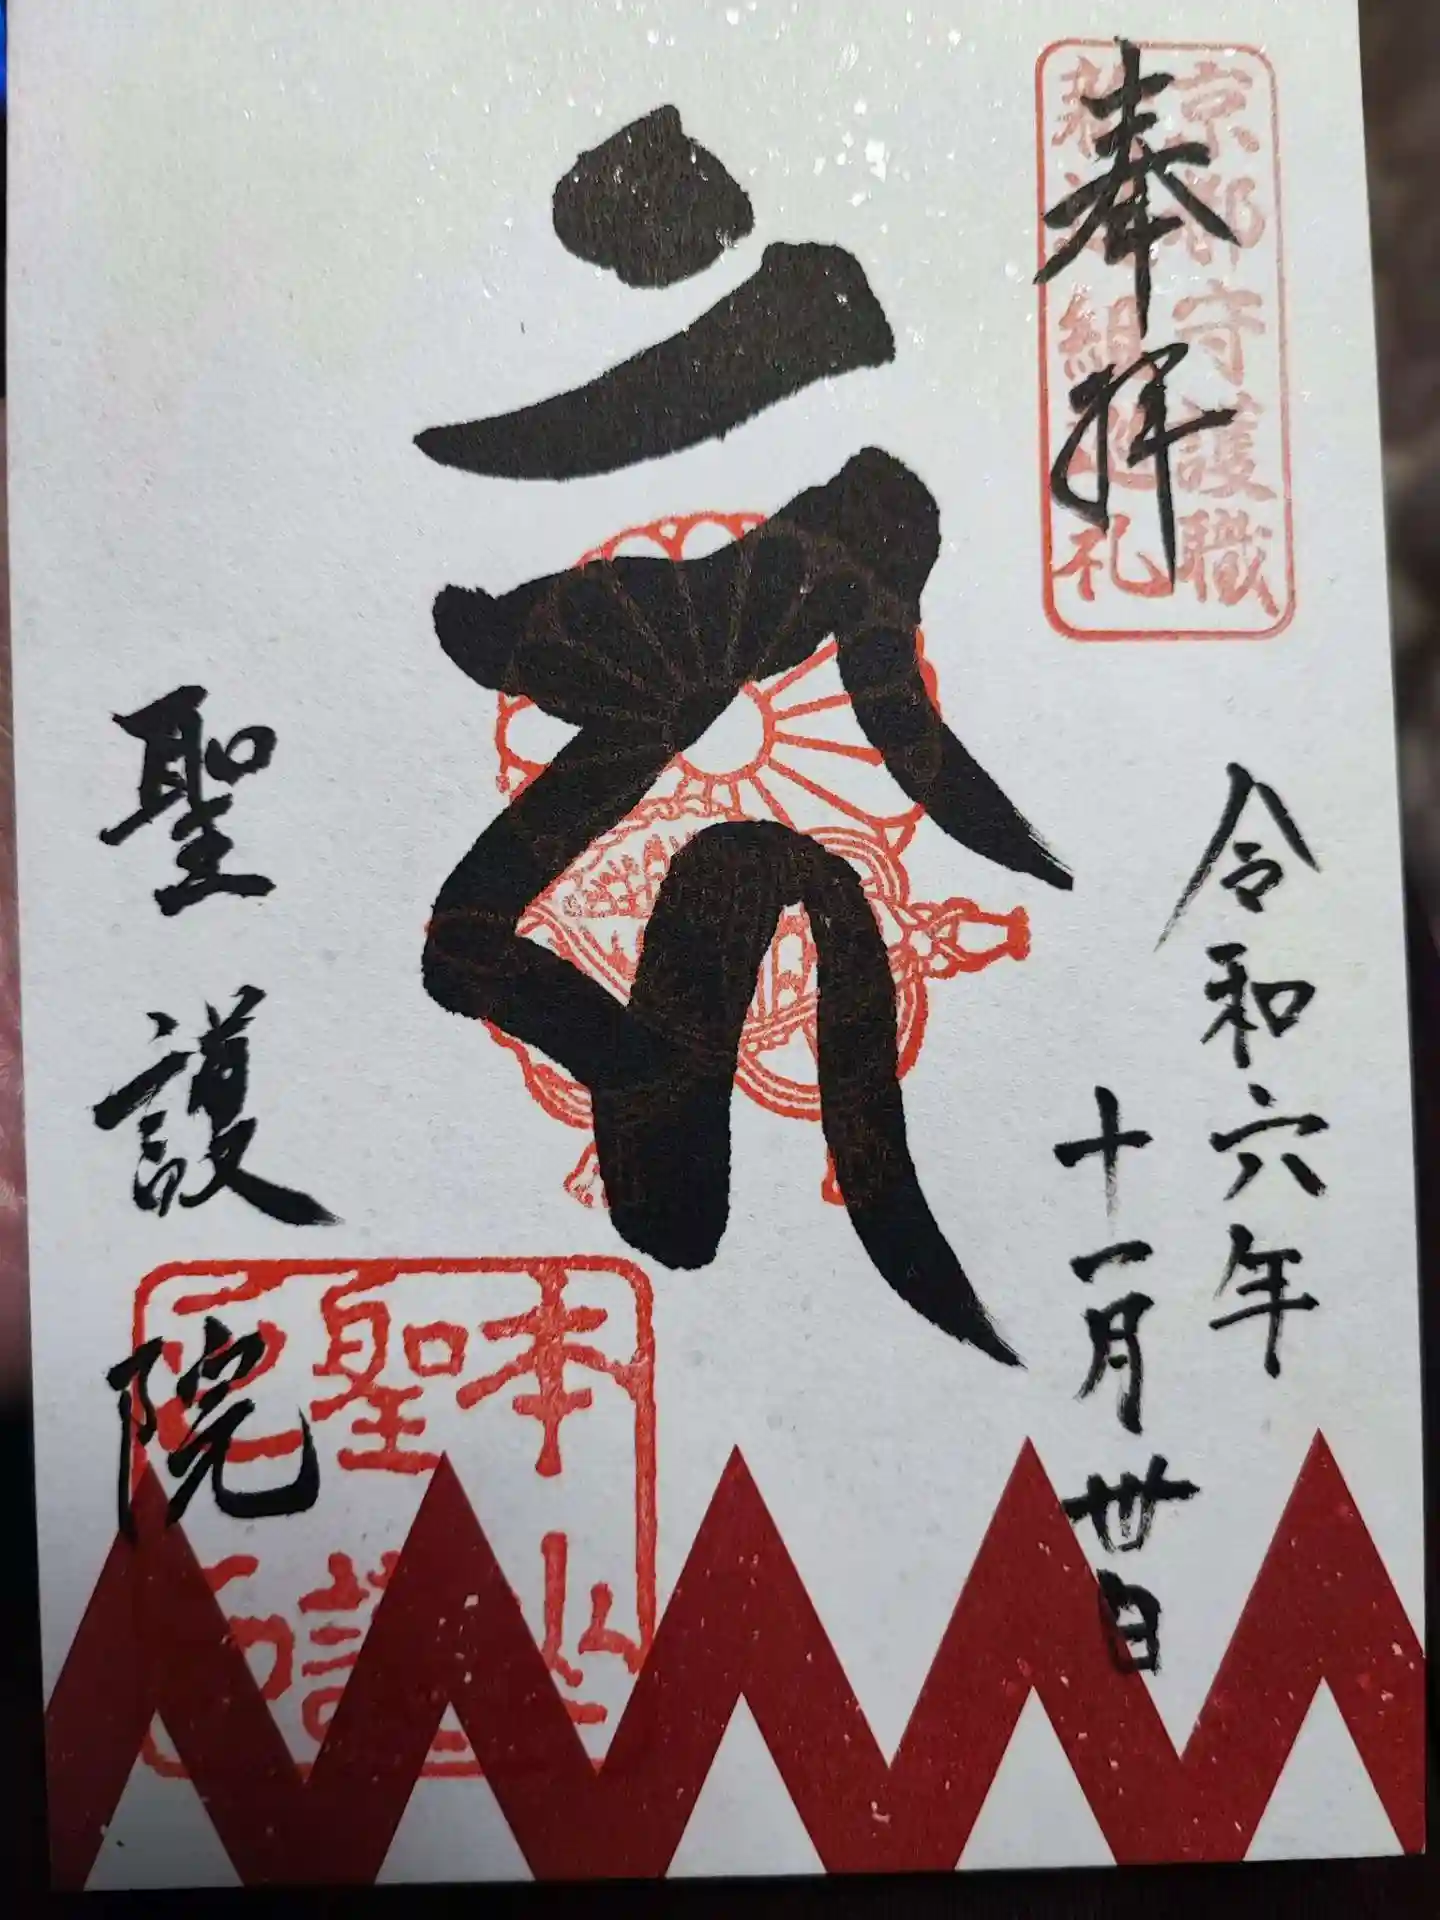 京都守護職
新選組巡礼
奉拝
令和六年
十一月卅日
聖護院
本山
聖護
院